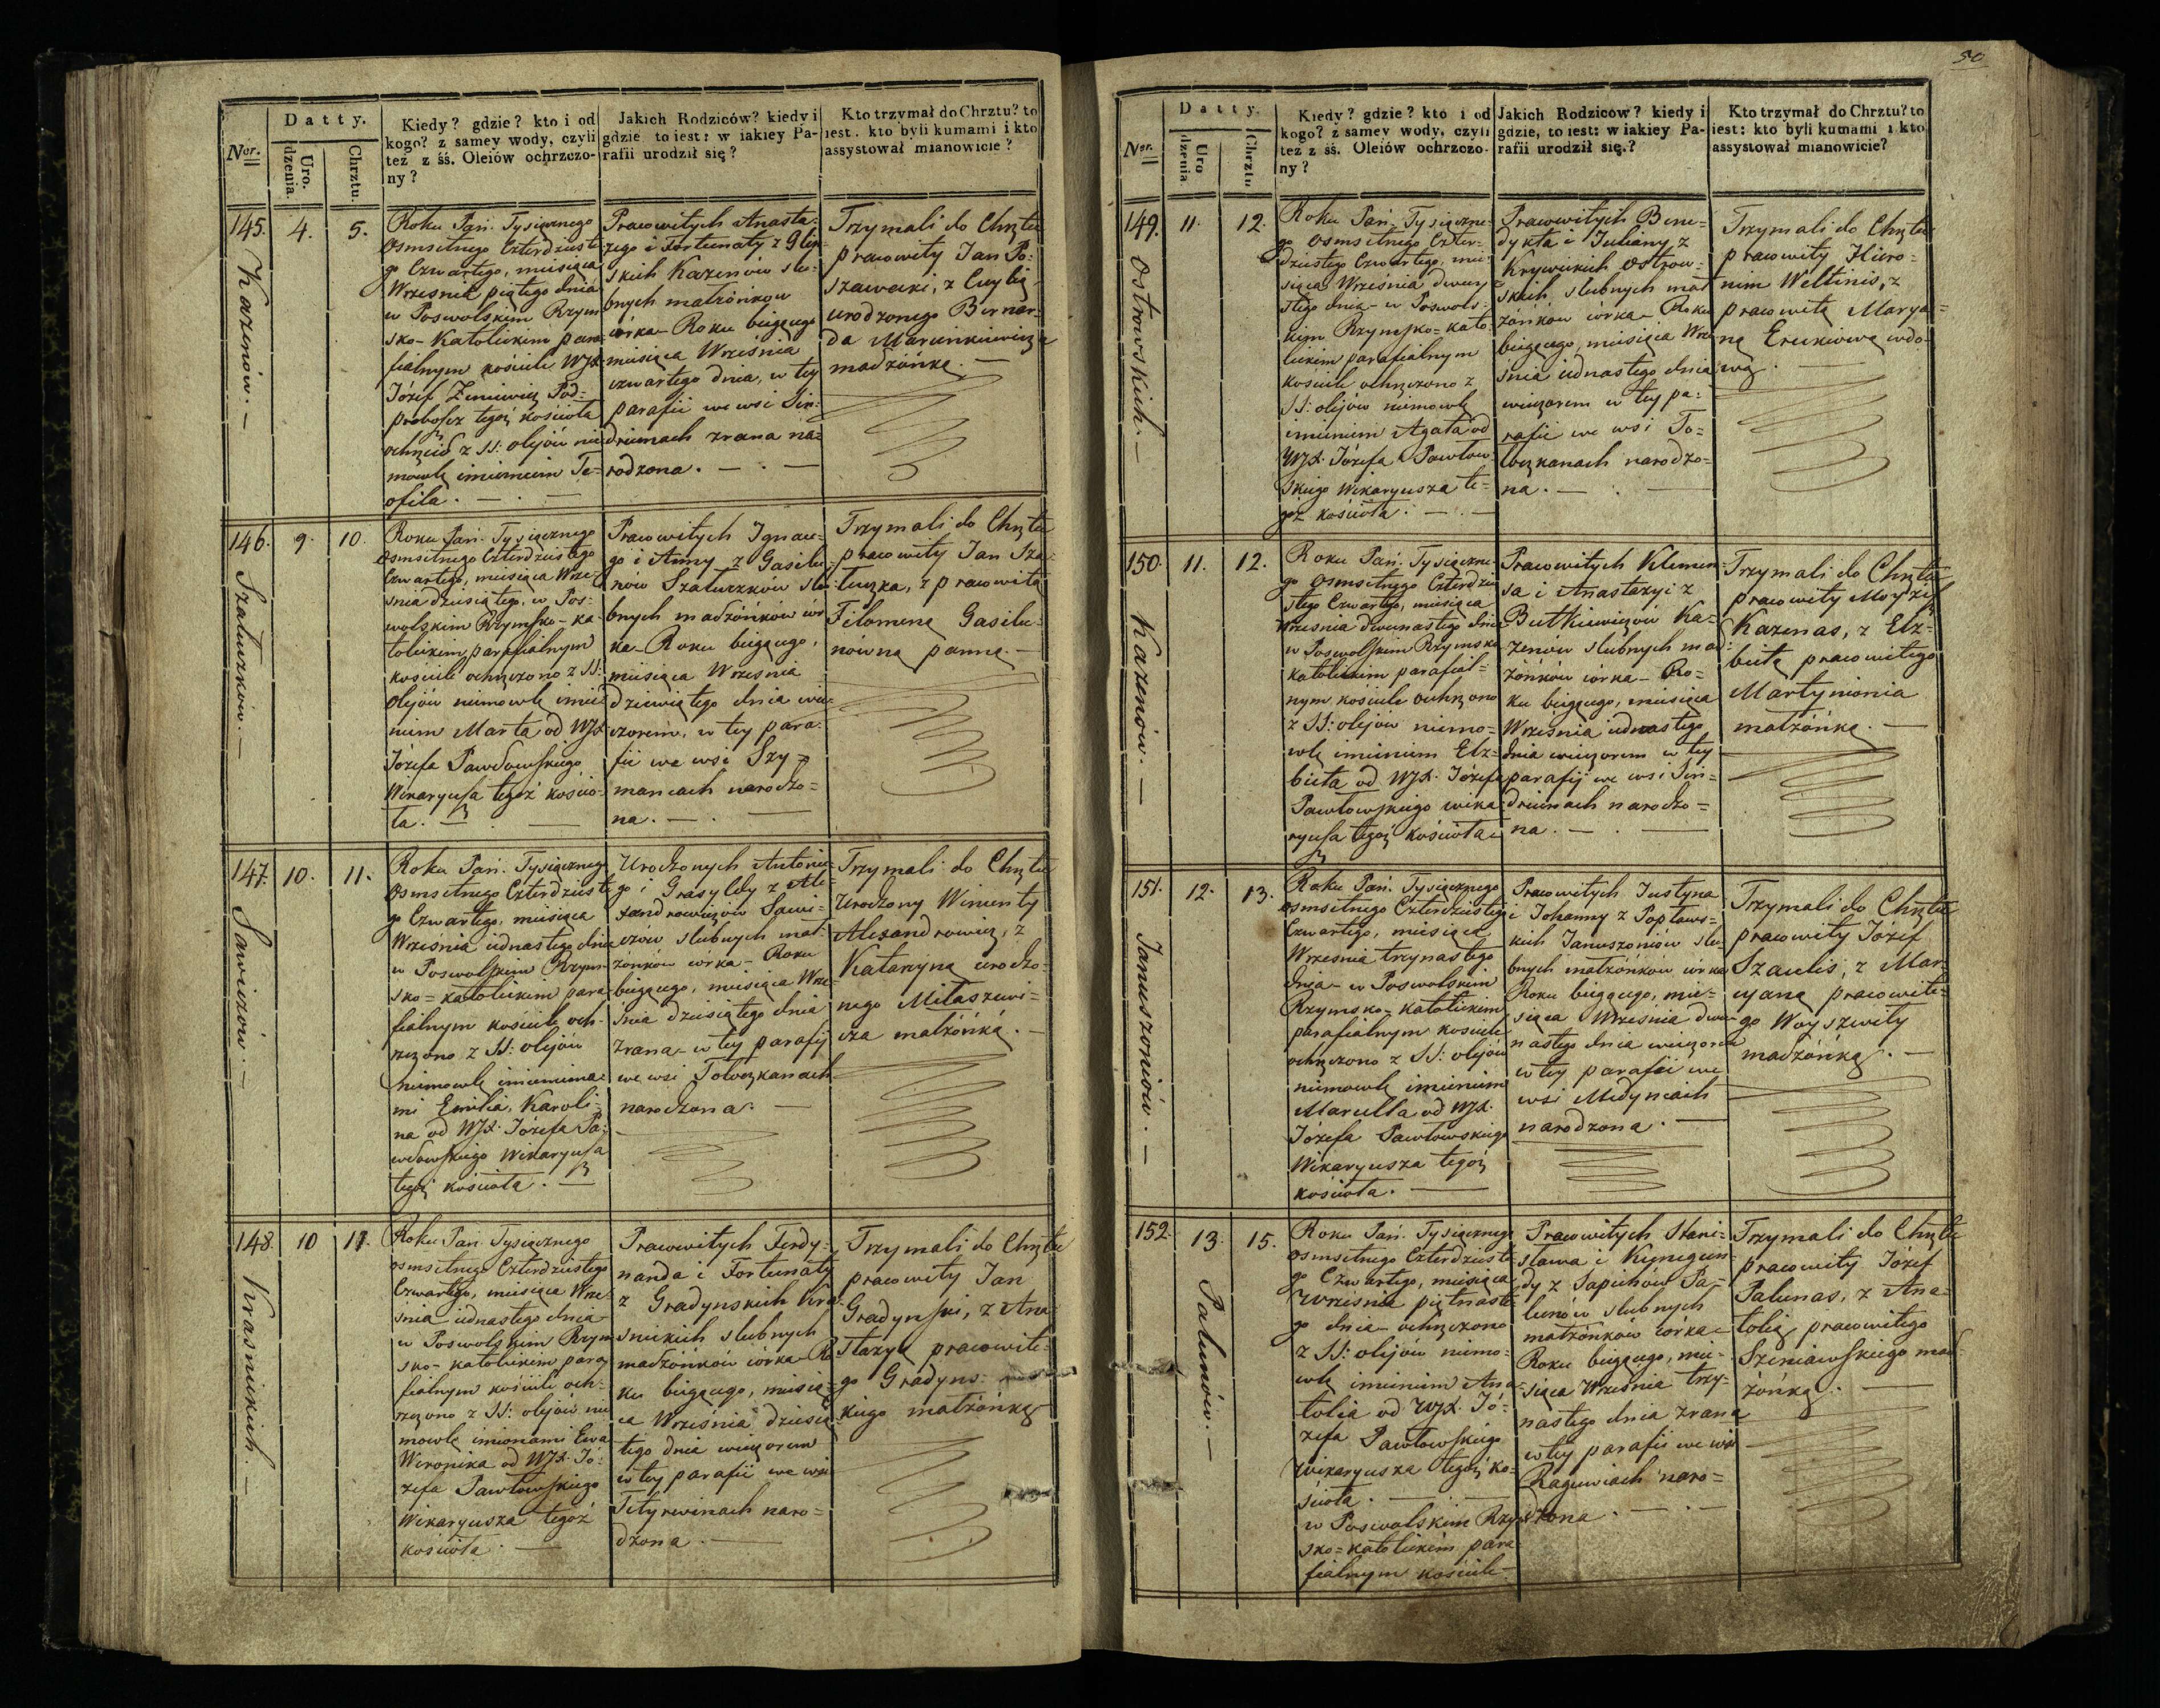 50
Nor.
Datty.
Uro.
dzenia.
Chrztu.
Kiedy? gdzie? kto i od
kogo? z samey wody, czyli
też z śś. Oleiów ochrzczo-
ny?
Jakich Rodziców? kiedy i
gdzie to iest: w iakiey Pa-
rafii urodził się?
Kto trzymał do Chrztu? to
iest. kto byli kumami i kto
assystował mianowicie?
145.
Kazenów. —
4.
5.
Roku Pań. Tysiącznego
Osmsetnego Czterdzieste
go Czwartego, miesiąca
Wrzesnia piątego dnia
w Poswolskim Rzym
sko-Katolickim para
fialnym kościele WJX.
Józef Zeniewicz Pod-
proboszcz tegoż kościoła
ochrzcił z SS: olejów nie
mowlę imieniem Te-
ofila. — . —
Pracowitych Anasta-
zego i Fortunaty z Glin-
skich Kazenów slu-
bnych małżónkow
córka — Roku bieżącego
miesiąca Wrzesnia
czwartego dnia, w tey
parafii we wsi Sin-
driunach zrana na-
rodzona. — . —
Trzymali do Chrztu
pracowity Jan Po-
szawecki, z Cecylią
urodzonego Bernar-
da Marcinkiewicza
małżónką. —
146.
Szatuszków. —
9.
10.
Roku Pań. Tysiącznego
Osmsetnego Czterdziestego
Czwartego, miesiąca Wrze-
snia dziesiątego, w Pos-
wolskim Rzymsko-ka-
tolickim parafialnym
kosciele ochrzczono z SS:
olejów niemowlę imie
niem Marta od WJX
Józefa Pawłowskiego
Wikaryusa tegoż kościo-
ła. — . —
Pracowitych Ignace-
go i Anny z Gasilu-
nów Szatuszków slu-
bnych małżónków cór
ka — Roku bieżącego,
miesiąca Wrzesnia
dziewiątego dnia wie-
czorem, w tey para-
fii we wsi Szy-
mancach narodzo-
na. — . —
Trzymali do Chrztu
pracowity Jan Sza-
tuszka, z pracowitą
Filomeną Gasilu-
nówną panną. —
147.
Sawiczów. —
10.
11.
Roku Pań. Tysiącznego
Osmsetnego Czterdzieste
go Czwartego, miesiąca
Wrzesnia iednastego dnia
w Poswolskim Rzym-
sko-katolickim para-
fialnym kościele och-
rzczono z SS: olejów
niemowlę imieniema-
mi Emilia, Karoli-
na od WJX. Józefa Pa-
włowskiego Wikaryusa
tegoż kościoła. —
Urodzonych Antonie-
go i Grasyldy z Ale-
xandrowiczów Sawi-
czów slubnych mał-
żonkow córka — Roku
bieżącego, miesiąca Wrze-
snia dziesiątego dnia
zrana — w tey parafij
we wsi Towczkanach
narodzona. —
Trzymali do Chrztu
Urodzony Wincenty
Alexandrowicz, z
Katarzyną urodzo-
nego Mitaszewi-
cza małżónką. —
148.
Krasnickich. —
10
11.
Roku Pań. Tysiącznego
osmsetnego Czterdziestego
Czwartego, miesiąca Wrze-
śnia iednastego dnia
w Poswolskim Rzym
sko-katolickim para
fialnym kościele och-
rzczono z SS: olejów nie
mowlę imionami Ewa
Weronika od WJX. Jó-
zefa Pawłowskiego
Wikaryusza tegoż
kościoła. —
Pracowitych Ferdy-
nanda i Fortunaty
z Gradynskich Kra-
snickich slubnych
małżónków córka Ro-
ku bieżącego, miesią-
ca Września dziesią-
tego dnia wieczorem
w tey parafii we wsi
Tetyrwinach naro-
dzona. —
Trzymali do Chrztu
pracowity Jan
Gradynski, z Ana-
stazyą pracowite-
go Gradyns-
kiego małżónką
Nor.
Datty.
Uro
dzenia
Chrztu
Kiedy? gdzie? kto i od
kogo? z samey wody, czyli
też z śś. Oleiów ochrzczo-
ny?
Jakich Rodziców? kiedy i
gdzie, to iest: w iakiey Pa-
rafii urodził się.?
Kto trzymał do Chrztu? to
iest: kto byli kumami i kto
assystował mianowicie?
149.
Ostrowskich. —
11.
12.
Roku Pań. Tysiączne-
go Osmsetnego Czter-
dziestego Czwartego, mie-
siąca Września dwuna
stego dnia — w Poswols-
kim Rzymsko-kato-
lickim parafialnym
kosciele ochrzczono z
SS: olejów niemowlę
imieniem Agata od
WJX. Józefa Pawłow-
skiego Wikaryusza te-
goż kościoła. —
Pracowitych Bene-
dykta i Julianny z
Krywickich Ostrow-
skich, slubnych mał
żónkow córka — Roku
bieżącego, miesiąca Wrze
snia iednastego dnia
wieczorem w tey pa-
rafii we wsi To-
wczkanach narodzo-
na. — . —
Trzymali do Chrztu
pracowity Hiero-
nim Weltinis, z
pracowitą Marya-
ną Erekiową wdo-
wą. —
150.
Kazenów. —
11.
12.
Roku Pań. Tysiączne-
go Osmsetnego Czterdzie
stego Czwartego, miesiąca
Wrzesnia dwunastego dnia
w Poswolskim Rzymsko
katolickim parafial-
nym kościele ochrzczono
z SS: olejów niemo-
wlę imieniem Elz-
bieta od WJX. Józefa
Pawłowskiego wika
ryusa tegoż kościoła —
Pracowitych Klemen-
sa i Anastazyi z
Butkiewiczów Ka-
zenów slubnych mał
żónków córka — Ro-
ku bieżącego, miesiąca
Wrzesnia iednastego
dnia wieczorem w tey
parafij we wsi Sin-
driunach narodzo-
na. — . —
Trzymali do Chrztu
pracowity Moyżesz
Kazenas, z Elz-
bietą pracowitego
Martynionia
małżónką. —
151.
Januszoniów. —
12.
13.
Roku Pań. Tysiącznego
Osmsetnego Czterdziestego
Czwartego, miesiąca
Wrzesnia trzynastego
dnia — w Poswolskim
Rzymsko-katolickim
parafialnym kosciele
ochrzczono z SS: olejów
niemowlę imieniem
Marcella od WJX.
Józefa Pawłowskiego
Wikaryusza tegoż
kościoła. —
Pracowitych Justyna
i Johanny z Popławs-
kich Januszoniów slu-
bnych małżónków córka
Roku bieżącego, mie-
siąca Wrzesnia dwu-
nastego dnia wieczorem
w tey parafii we
wsi Medyniach
narodzona. —
Trzymali do Chrztu
pracowity Józef
Szaulis, z Mar-
cyaną pracowite-
go Woyszwiły
małżónką. —
152.
Palunów. —
13.
15.
Roku Pań. Tysiącznego
Osmsetnego Czterdzieste-
go Czwartego, miesiąca
Wrzesnia piętnaste-
go dnia — ochrzczono
z SS: olejów niemo-
wlę imieniem Ana-
tolia od WJX. Jó-
zefa Pawłowskiego
Wikaryusza tegoż ko-
ścioła. —
w Poswolskim Rzym
sko-katolickim para
fialnym kosciele —
Pracowitych Stani-
sława i Kynegun-
dy z Sapichow Pa-
lunów slubnych
małżónków córka —
Roku bieżącego, mie-
siąca Września trzy-
nastego dnia zrana
w tey parafii we wsi
Raguwiach naro-
dzona. — . —
Trzymali do Chrztu
pracowity Józef
Palunas, z Ana-
tolią pracowitego
Szeniawskiego mał-
żónką. —